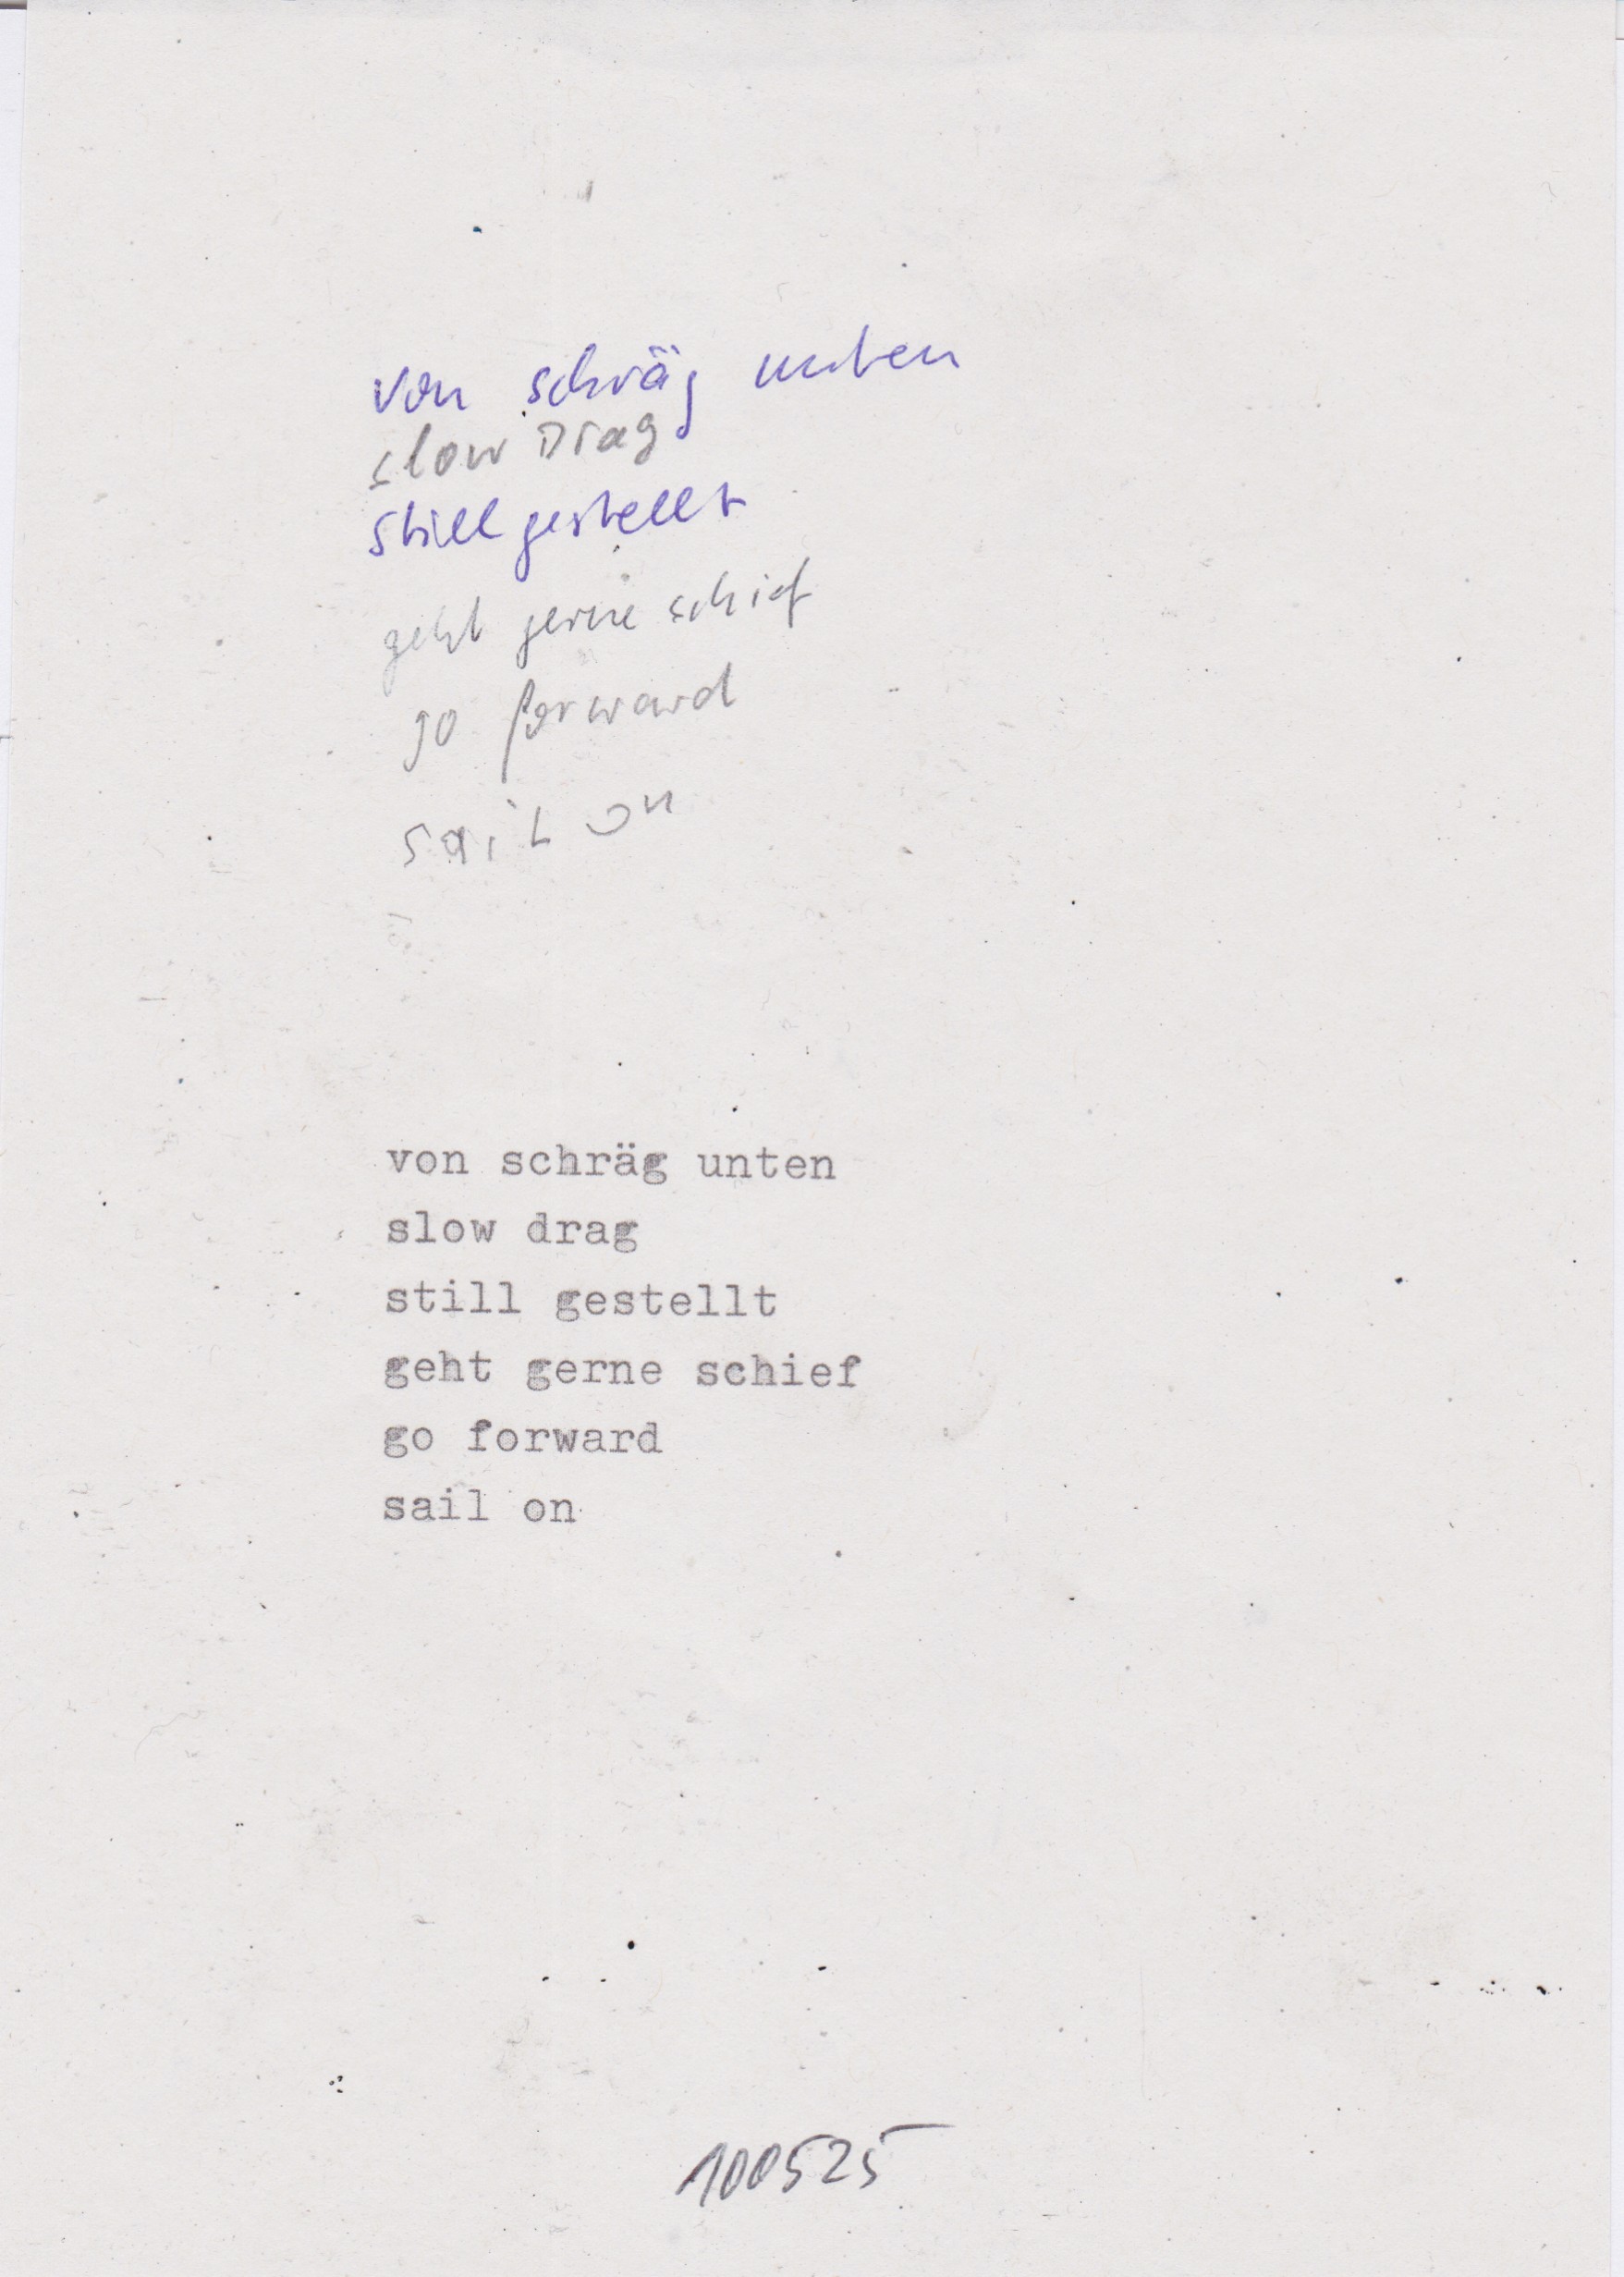 von schräg unten
slow Drag
still gestellt
geht gerne schief
go forward
sail on
von schräg unten
slow drag
still gestellt
geht gerne schief
go forward
sail on
100525